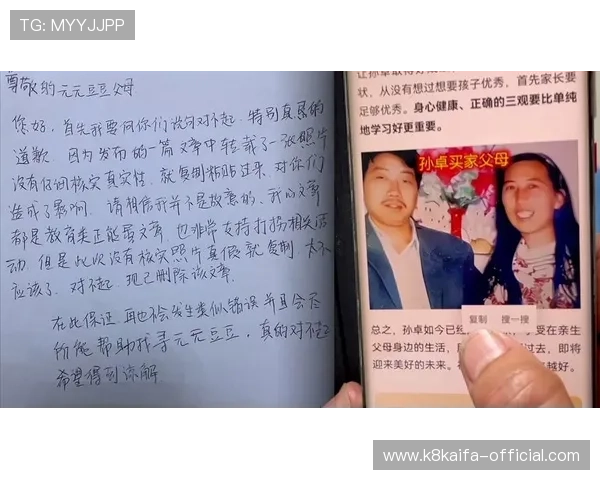 TG: MYYJJPP
尊敬的元元豆豆父母
您好，首先我要向你们说句对不起，特别真恳的
道歉，因为发布的一篇文章中转载了一张照片
没有仔细核实真实性，就复制粘贴过来，对你们
造成了影响，请相信我并不是故意的，我的文章
都是教育类正能量文章，也非常支持打拐相关活
动，但是此次没有核实照片真假就复制，太不
应该了，对不起，现已删除该文章，
在此保证，再也不会发生类似错误并且会尽
所能帮助找寻元元豆豆，真的对不起
希望得到谅解
让孙卓取得好成
状，从没有想过想要孩子优秀，首先家长要
足够优秀。身心健康、正确的三观要比单纯
地学习好更重要。
孙卓买家父母
复制 搜一搜
总之，孙卓如今已经 享受在亲生
父母身边的生活， 过去，即将
迎来美好的未来。祝 越好。
www.k8kaifa-official.com